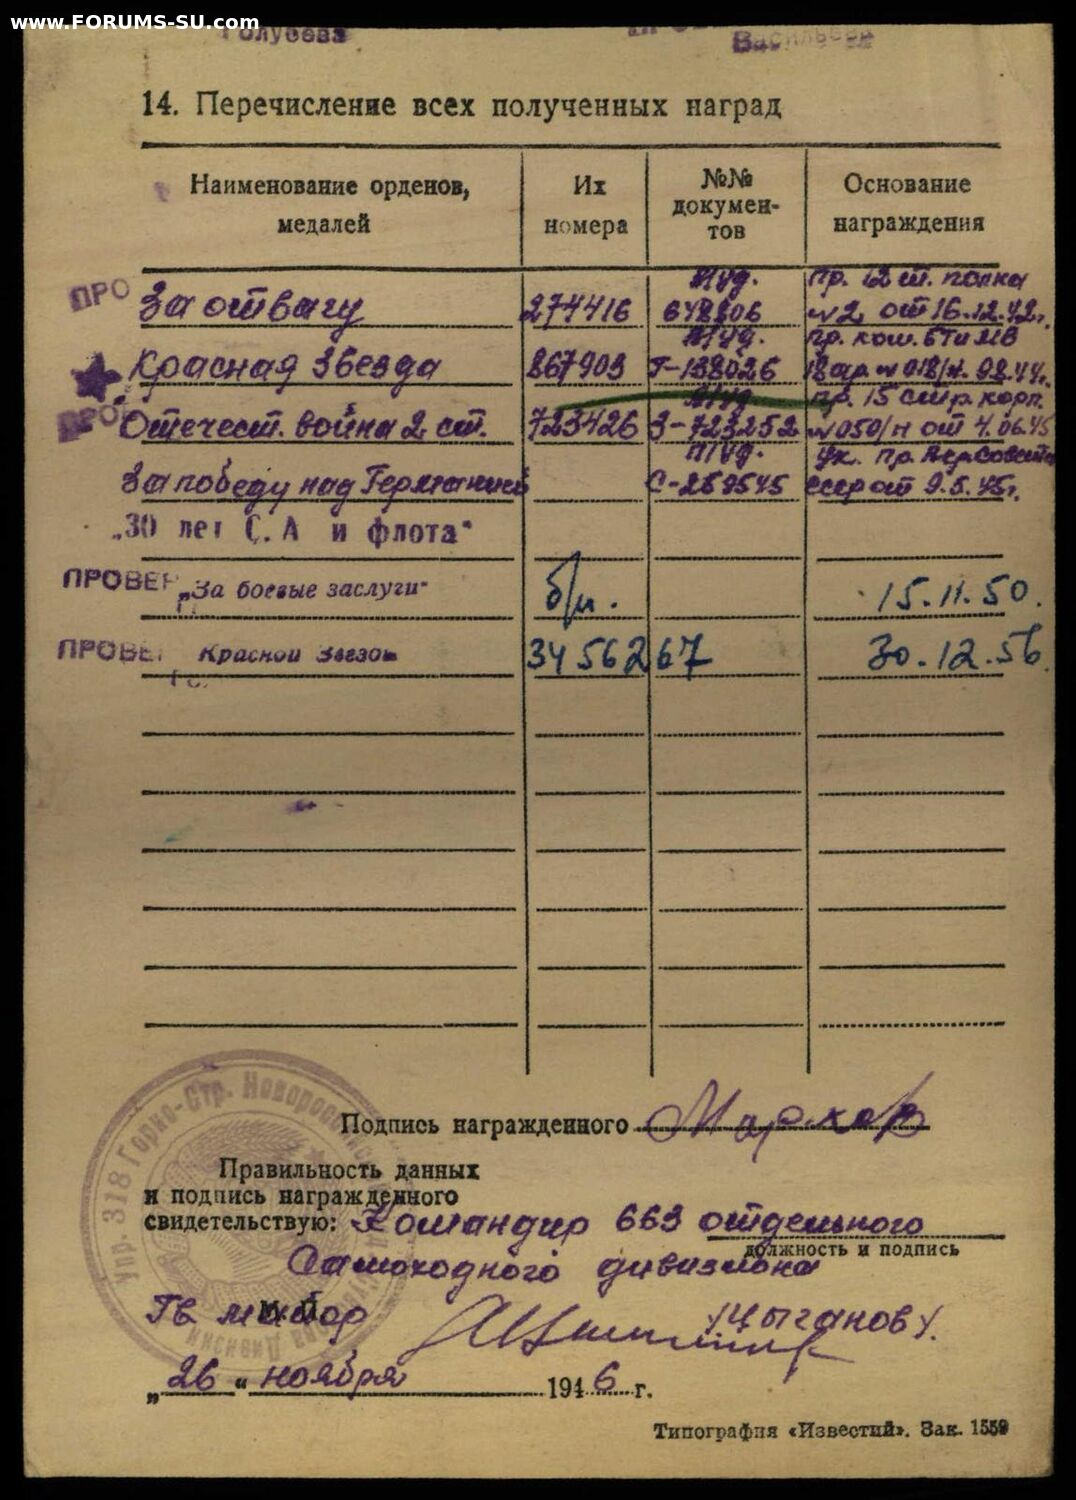 www.FORUMS-SU.com
Голубева
Васильева
14. Перечисление всех полученных наград
Наименование орденов, медалей
Их номера
№№ документов
Основание награждения
ПРО За отвагу 274416 т/уд. 648806 пр. 12 ст. полка №2 от 16.12.42г.
Красная Звезда 867903 т/уд. Г-138026 пр. ком. БТ и МВ 18 ар № 018/н. 09.44г.
ПРО Отечест. война 2 ст. 723426 т/уд. З-723252 пр. 15 стр. корп. №050/н от 4.06.45
За победу над Германией т/уд. С-259545 ук. пр. Вер Совета СССР от 9.5.45г.
„30 лет С. А и флота“
ПРОВЕР „За боевые заслуги“ б/н. 15.11.50.
ПРОВЕ Красной Звезды 3456267 30.12.56.
Подпись награжденного Мархов
Правильность данных
и подпись награжденного
свидетельствую: Командир 663 отдельного
должность и подпись
Самоходного дивизиона
Гв. майор /Цыганов/.
М. П.
„26“ ноября 1946 г.
Упр. 318 Горно-Стр. Новоросс
Дивизии
Типография «Известий». Зак. 1559